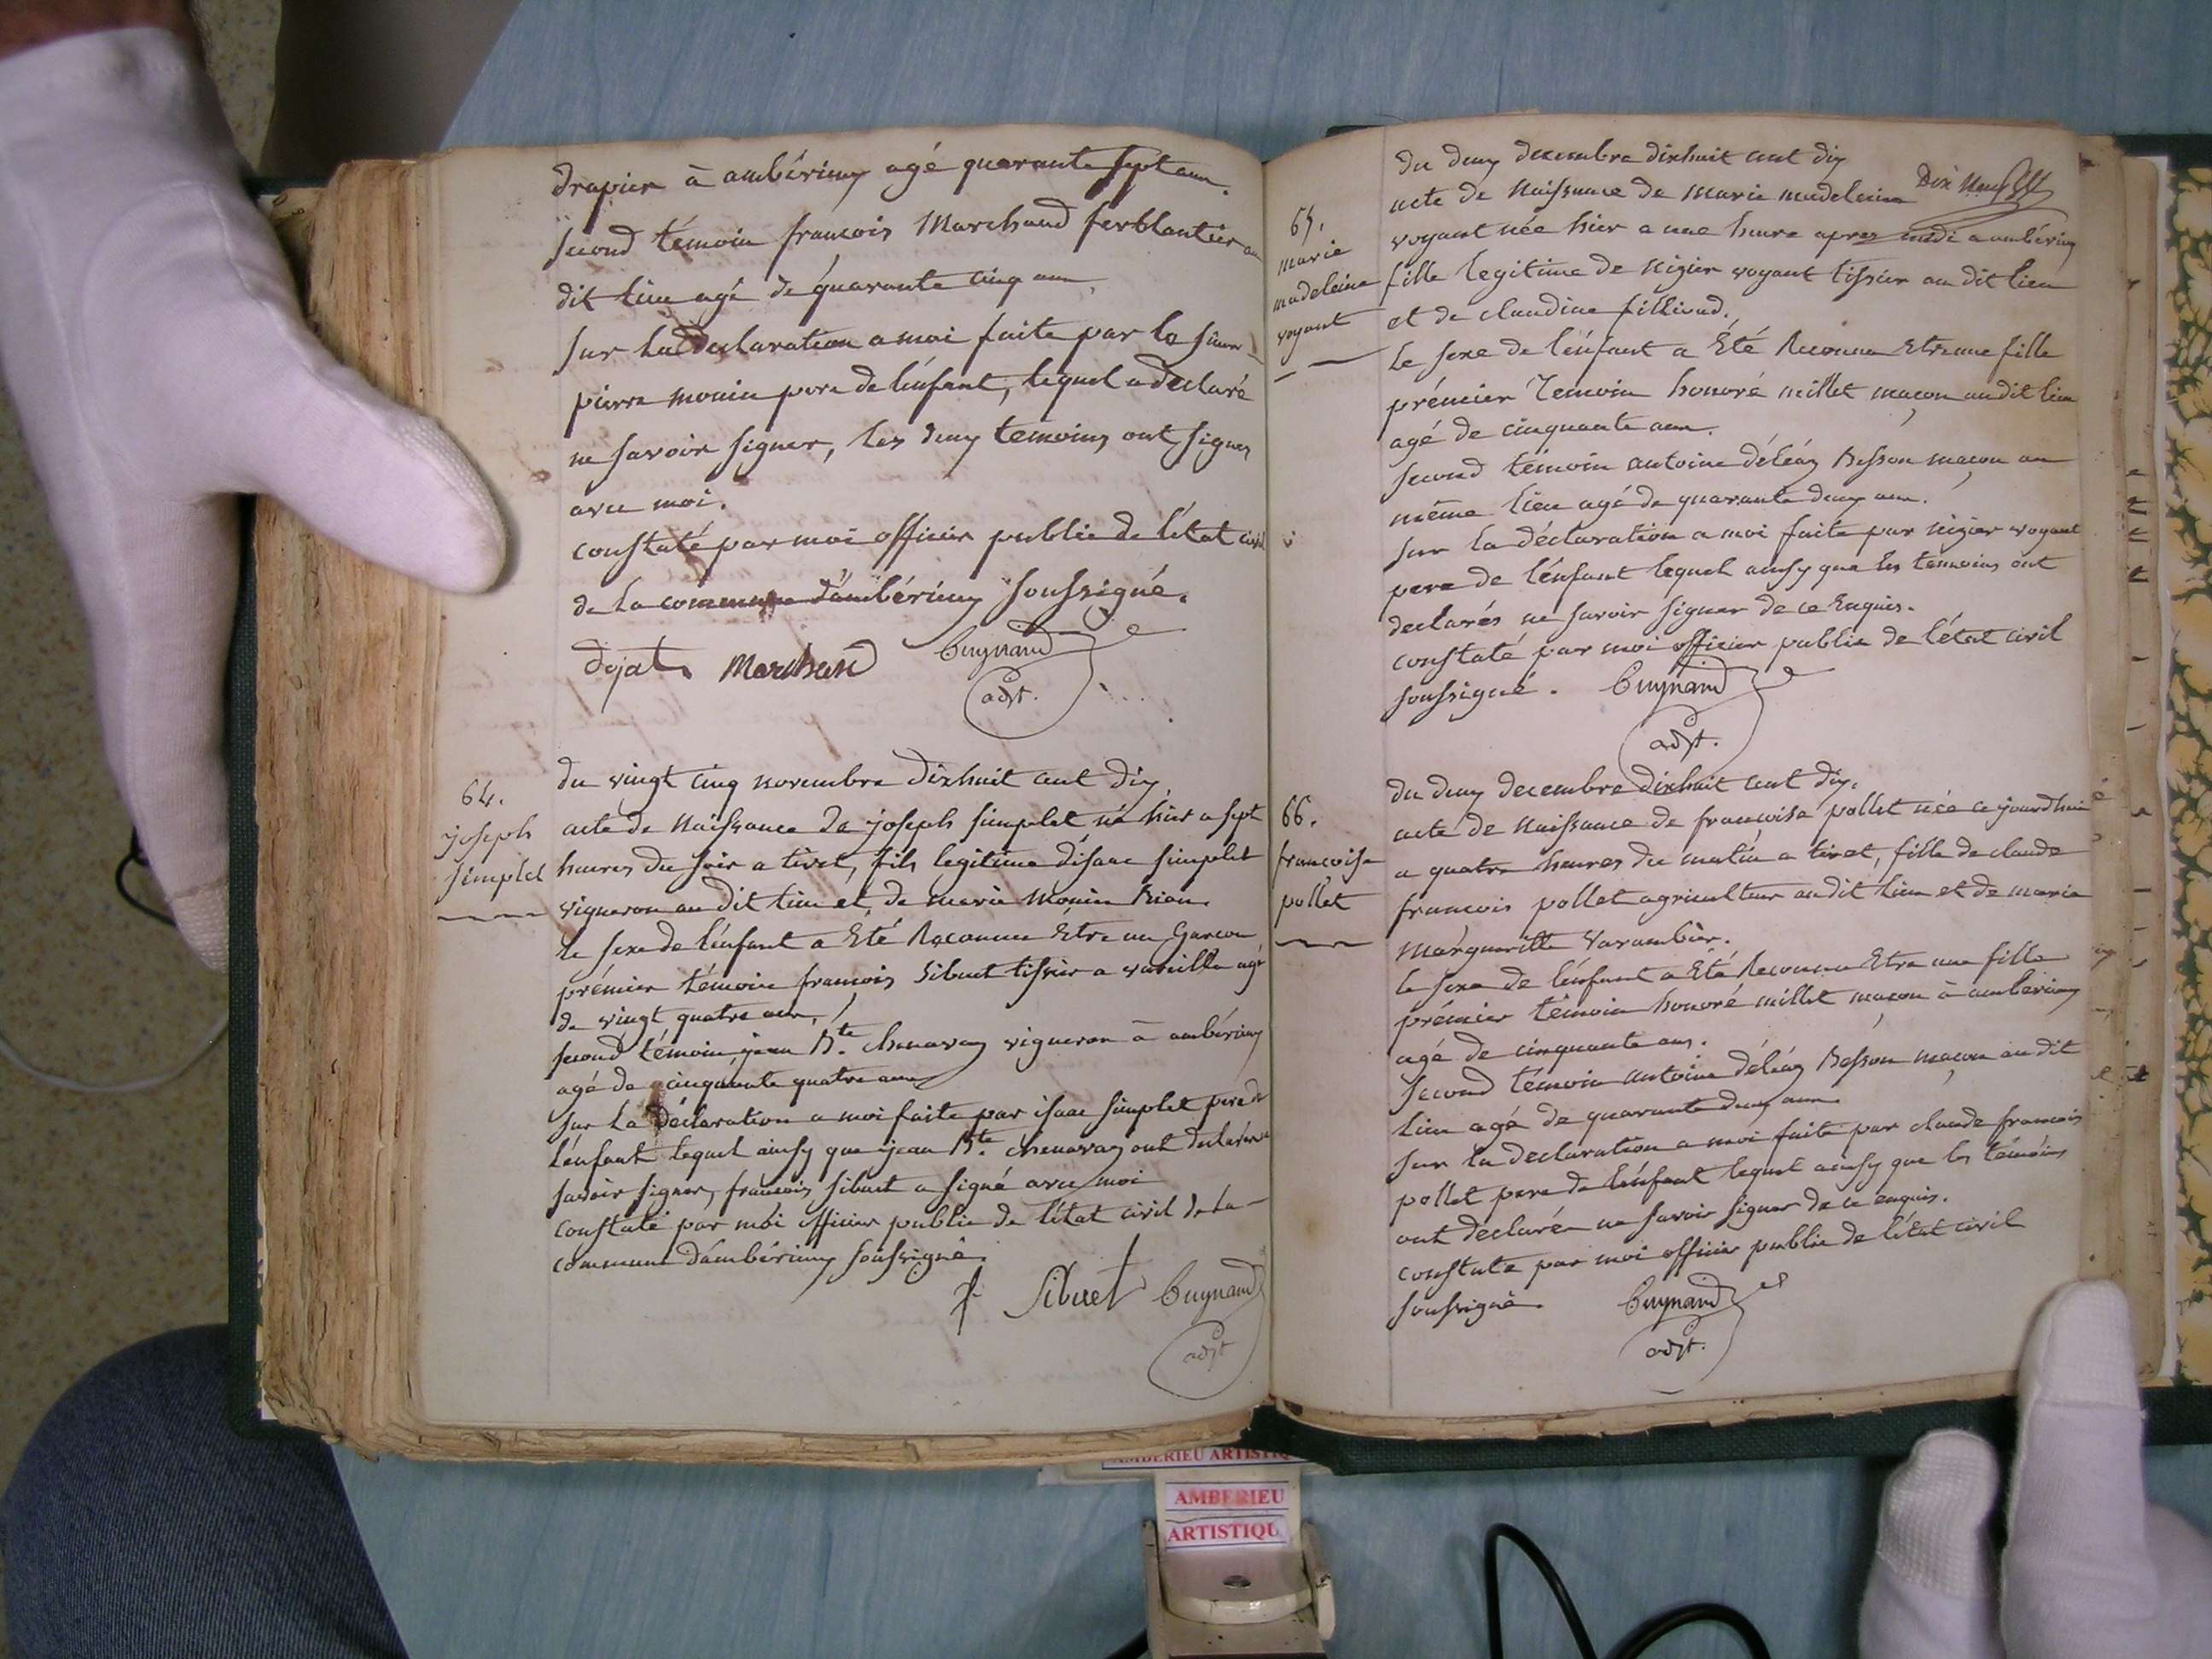 drapier à ambérieux agé quarante sept ans.
second témoin francois Marchand ferblantier au
dit lieu agé de quarante cinq ans
sur la déclaration a moi faite par le sieur
pierre monin pere de l'énfant, lequel a déclaré
ne savoir signer, les deux témoins ont signés
avec moi.
constaté par moi officier public de l'état civil
de la commune d'ambérieux soussigné.
dejat Marchand Cuynaud
adjt.
64.
joseph
simplet
du vingt cinq novembre dixhuit cent dix
acte de Naissance de joseph simplet né hier a sept
heures du soir a tiret, fils legitime d'isaac simplet
vigneron au dit lieu et de marie Monin Rion.
le sexe de l'énfant a Eté Reconnu Etre un Garcon
prémier témoin francois Sibuet tissier a vareille agé
de vingt quatre ans,
second témoin jean Bte. chenavaz vigneron à ambérieux
agé de cinquante quatre ans
sur la Déclaration a moi faite par isaac simplet pere de
l'énfant lequel ainsy que jean Bte. chenavaz ont declarés ne
savoir signer, francois sibuet a signé avec moi
constaté par moi officier public de l'état civil de la
commune d'ambérieux soussigné.
f Sibuet Cuynaud
adjt
Dix Neuf
65.
marie
madeleine
voyant
du deux decembre dixhuit cent dix
acte de Naissance de marie madeleine
voyant née hier a une heure apres midi a ambérieux
fille legitime de nizier voyant tissier au dit lieu
et de claudine filliond.
le sexe de l'énfant a Eté Reconnu Etre une fille
prémier Temoin honoré millet maçon au dit lieu
agé de cinquante ans.
second témoin antoine déléaz Besson maçon au
même lieu agé de quarante deux ans.
sur la déclaration a moi faite par nizier voyant
pere de l'énfant lequel ainsy que les temoins ont
declarés ne savoir signer de ce Enquis.
constaté par moi officier public de l'état civil
soussigné. Cuynaud
adjt.
66.
francoise
pollet
du deux decembre dixhuit cent dix.
acte de naissance de francoise pollet née ce jourdhui
a quatre heures du matin a tiret, fille de claude
francois pollet agriculteur au dit lieu et de marie
Margueritte Varambier.
le sexe de l'énfant a Eté Reconnu Etre une fille
prémier témoin honoré millet maçon à ambérieux
agé de cinquante ans.
second témoin antoine déléaz Besson maçon au dit
lieu agé de quarante deux ans
sur la declaration a moi faite par claude francois
pollet pere de l'énfant lequel ainsy que les témoins
ont déclarés ne savoir signer de ce enquis.
constaté par moi officier public de l'état civil
soussigné. Cuynaud
adjt.
AMBERIEU ARTISTIQ
AMBERIEU
ARTISTIQU